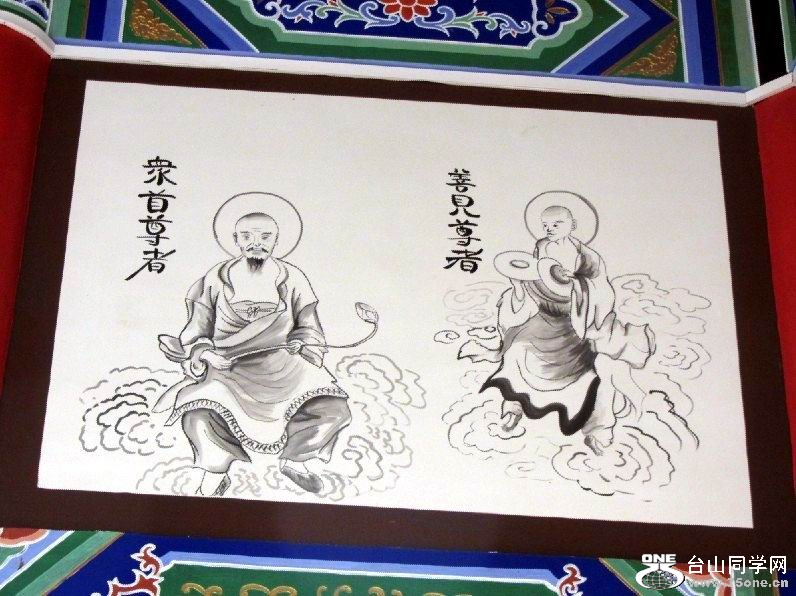 眾首尊者
善見尊者
ONE
台山同学网
www.15one.cn